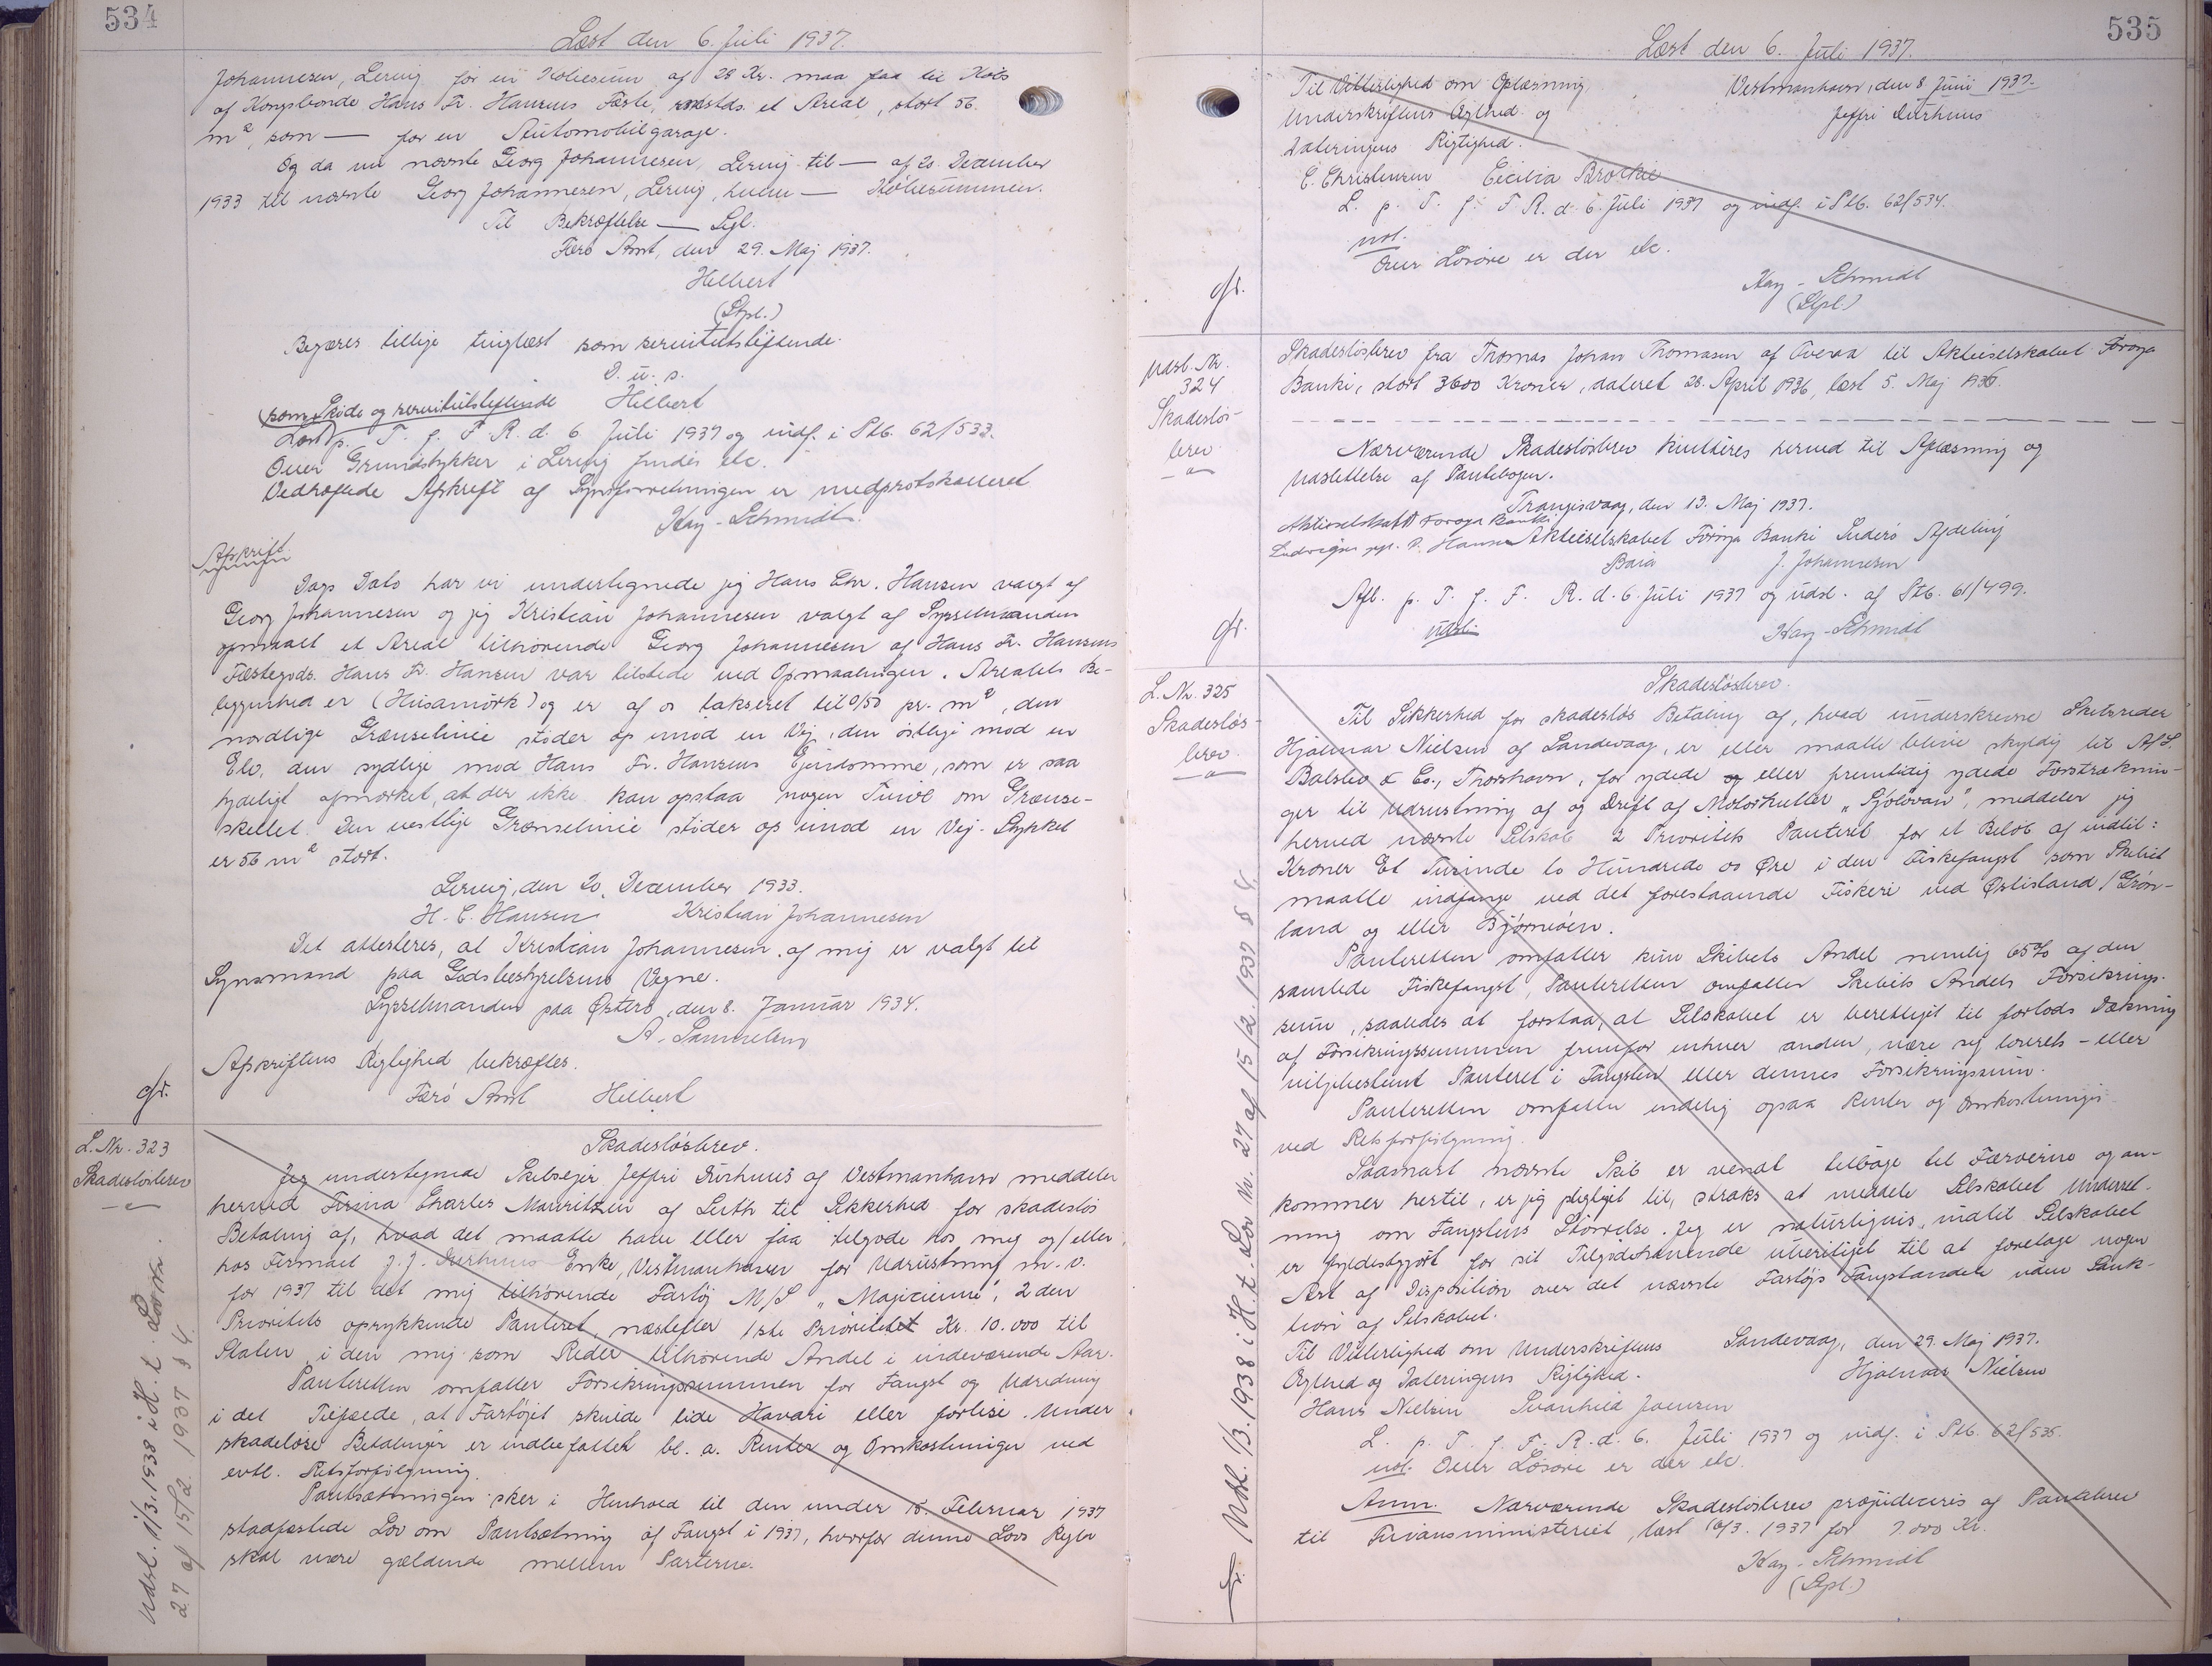 534
Læst den 6. Juli 1937.
Johannesen, Lervig for en Købesum af 28 Kr. maa faa til Købs
af Kongsbonde Hans Fr. Hansens Fæste, smstds. et Areal, stort 56.
m², som — for en Automobilgarage.
Og da nu nævnte Georg Johannesen, Lervig til — af 20. December
1933 til nævnte Georg Johannesen, Lervig, — Købesummen.
Til Bekræftelse — Sgl.
Færø Amt, den 29. Maj 1937.
Hilbert
(Stpl.)
Begæres tillige tinglæst som servitutstiftende.
D. u. s.
Hilbert
(som Skøde og servitutstiftende
Læst p. T. f. F. R. d. 6. Juli 1937 og indf. i Ptb. 62/533.
Over Grundstykker i Lervig findes etc.
Vedhæftede Afskrift af Synsforretningen er medprotokolleret
Kay-Schmidt.
Afskrift.
Dags Dato har vi undertegnede jeg Hans Chr. Hansen valgt af
Georg Johannesen og jeg Kristian Johannesen valgt af Sysselmanden
opmaalt et Areal tilhørende Georg Johannesen af Hans Fr. Hansens
Fæstegods. Hans Fr. Hansen var tilstede ved Opmaalingen. Arealets Be-
liggenhed er (Húsamørk) og er af os takseret til 0/50 pr. m², den
nordlige Grænselinie støder op imod en Vej, den østlige mod en
Elv, den sydlige mod Hans Fr. Hansens Ejendomme, som er saa
tydeligt opmærket, at der ikke kan opstaa nogen Tvivl om Grænse-
skellet. Den vestlige Grænselinie støder op imod en Vej. Stykket
er 56 m² stort.
Lervig, den 20. December 1933.
H. C. Hansen Kristian Johannesen
Det attesteres, at Kristian Johannesen af mig er valgt til
Synsmand paa Godsbestyrelsens Vegne.
Sysselmanden paa Østerø, den 8. Januar 1934.
A. Samuelsen
Afskriftens Rigtighed bekræftes.
Færø Amt Hilbert
Gr.
L. Nr. 323
Skadesløsbrev
Skadesløsbrev.
Jeg undertegnede Skibsejer Jeffri Durhuus af Vestmanhavn meddeler
herved Firma Charles Mauritzen af Leith til Sikkerhed for skadesløs
Betaling af, hvad det maatte have eller faa tilgode hos mig og/eller
hos Firmaet J. J. Durhuus Enke, Vestmanhavn for Udrustning m. v.
for 1937 til det mig tilhørende Fartøj M/S „Magicienne", 2den
Prioritets oprykkende Panteret, næstefter 1ste Prioritet Kr. 10.000 til
Staten i den mig som Reder tilhørende Andel i indeværende Aar.
Panteretten omfatter Forsikringssummen for Fangst og Udredning
i det Tilfælde, at Fartøjet skulde lide Havari eller forlise. Under
skadesløse Betalinger er indbefattet bl. a. Renter og Omkostninger ved
evtl. Retsforfølgning.
Pantsætningen sker i Henhold til den under 15. Februar 1937
stadfæstede Lov om Pantsætning af Fangst i 1937, hvorfor denne Lovs Regler
skal være gældende mellem Parterne.
Udsl. 1/3. 1938 i H. t. Lov nr.
27 af 15/2 1937 § 4.
535
Læst den 6. Juli 1937.
Til Vitterlighed om Oplæsning Vestmanhavn, den 8 Juni 1937.
Underskriftens Ægthed og Jeffri Durhuus
Dateringens Rigtighed.
C. Christensen Cecilia Brockie
L. p. T. f. F. R. d. 6. Juli 1937 og indf. i Ptb. 62/534.
not.
Over Løsøre er der etc.
Kay-Schmidt
(Stpl.)
Gr.
Udsl. Nr.
324
Skadesløs-
brev
Skadesløsbrev fra Thomas Johan Thomasen af Øveraa til Aktieselskabet Føroya
Banki, stort 3600 Kroner, dateret 28. April 1936, læst 5. Maj 1936.
Nærværende Skadesløsbrev kvitteres herved til Aflæsning og
Udslettelse af Pantebogen.
Trangisvaag, den 13. Maj 1937.
Aktieselskabet Føroya Banki
Aktieselskabet Føroya Banki Suderø Afdeling
J. Johannesen
Afl. p. T. f. F. R. d. 6. Juli 1937 og udsl. af Ptb. 61/499.
Kay-Schmidt
Gr.
L. Nr. 325
Skadesløs-
brev
Skadesløsbrev.
Til Sikkerhed for skadesløs Betaling af, hvad underskrevne Skibsreder
Hjalmar Nielsen af Sandevaag, er eller maatte blive skyldig til A/S.
Balslev & Co., Thorshavn, for ydede og eller fremtidig ydede Forstræknin-
ger til Udrustning af og Drift af Motorkutter „Sjóløvan", meddeler jeg
herved nævnte Selskab 2 Prioritets Panteret for et Beløb af indtil:
Kroner Et Tusinde to Hundrede 00 Øre i den Fiskefangst som Skibet
maatte indfange ved det forestaaende Fiskeri ved Østisland/Grøn-
land og eller Bjørneøen.
Panteretten omfatter kun Skibets Andel nemlig 65% af den
samlede Fiskefangst, Panteretten omfatter Skibets Andels Forsikrings-
sum, saaledes at forstaa, at Selskabet er berettiget til forlods Dækning
af Forsikringssummen fremfor enhver anden, være sig lovrets- eller
viljebestemt Panteret i Fangsten eller dennes Forsikringssum.
Panteretten omfatter endelig ogsaa Renter og Omkostninger
ved Retsforfølgning.
Saasnart nævnte Skib er vendt tilbage til Færøerne og an-
kommer hertil, er jeg pligtig til, straks at meddele Selskabet Underret-
ning om Fangstens Størrelse. Jeg er naturligvis, indtil Selskabet
er fyldestgjort for sit Tilgodehavende uberettiget til at foretage nogen
Art af Disposition over det nævnte Fartøjs Fangstandele uden Sank-
tion af Selskabet.
Til Vitterlighed om Underskriftens Sandevaag, den 29. Maj 1937.
Ægthed og Dateringens Rigtighed. Hjalmar Nielsen
Hans Nielsen Svanhild Joensen
L. p. T. f. F. R. d. 6. Juli 1937 og indf. i Ptb. 62/535.
not. Over Løsøre er der etc.
Anm. Nærværende Skadesløsbrev præjudiceres af Pantebrev
til Finansministeriet, læst 16/3. 1937 for 7.000 Kr.
Kay-Schmidt
(Stpl.)
Gr. Udsl. 1/3. 1938 i H. t. Lov Nr. 27 af 15/2 1937 § 4.